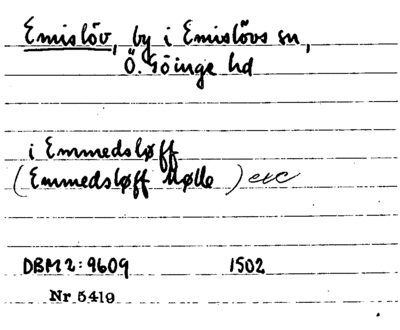 Emislöv, by i Emislövs sn,
Ö. Göinge hd
i Emmedsløff
(Emmedsløff Mølle) etc
DBM2:9609 1502
Nr 5419